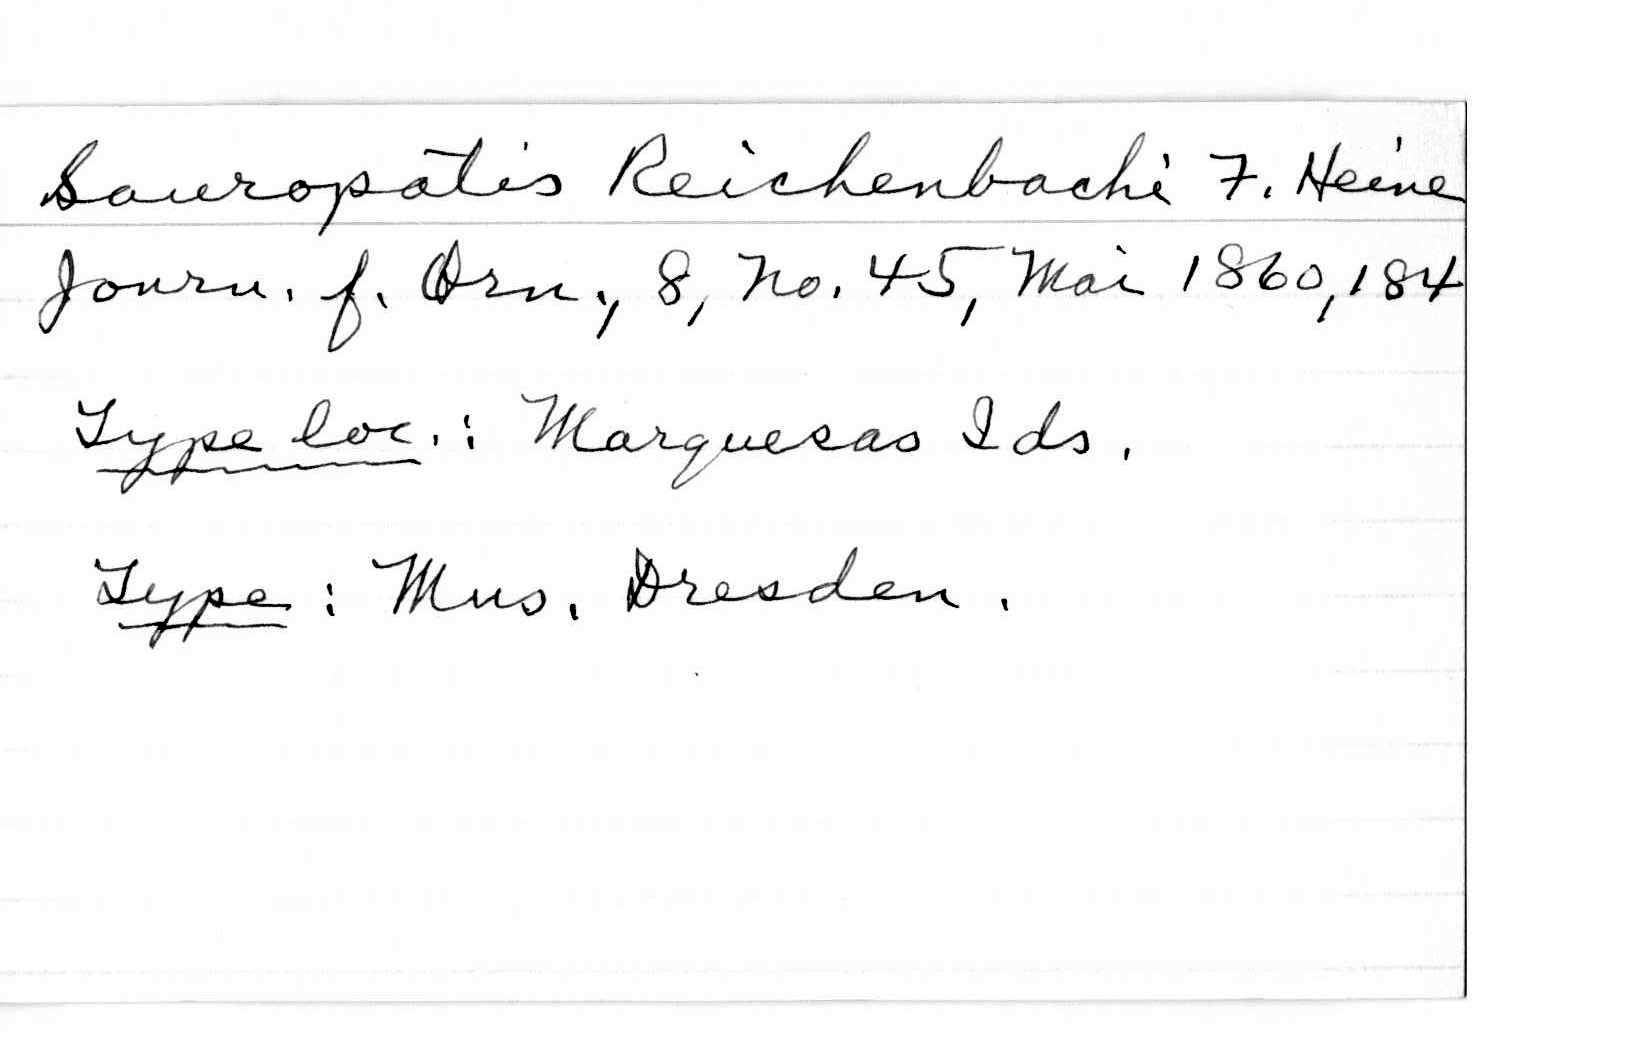 Sauropatis Reichenbachi F. Heine
Journ. f. Orn., 8, No. 45, Mai 1860, 184
Type loc.: Marquesas Ids.
Type: Mus. Dresden.